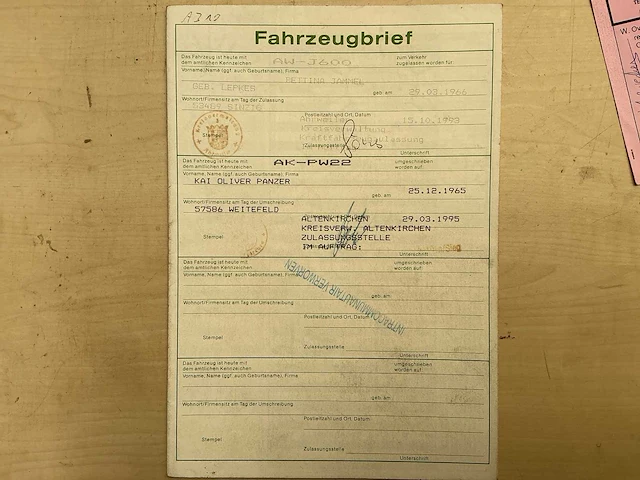 A310
Fahrzeugbrief
Das Fahrzeug ist heute mit
dem amtlichen Kennzeichen
AW-J600
zum Verkehr
zugelassen worden für:
Vorname/Name (ggf. auch Geburtsname), Firma
BETTINA JAMMEL
GEB. LEPKES
geb. am
29.03.1966
Wohnort/Firmensitz am Tag der Zulassung
53489 SINZIG
Postleitzahl und Ort, Datum
Ahrweiler 15.10.1993
Kreisverwaltung
Stempel
(Zulassungsstelle)
Unterschrift
Das Fahrzeug ist heute mit
dem amtlichen Kennzeichen
AK-PW22
umgeschrieben
worden auf:
Vorname, Name (ggf. auch Geburtsname), Firma
KAI OLIVER PANZER
geb. am
25.12.1965
Wohnort/Firmensitz am Tag der Umschreibung
57586 WEITEFELD
ALTENKIRCHEN 29.03.1995
KREISVERW. ALTENKIRCHEN
Stempel
ZULASSUNGSSTELLE
IM AUFTRAG:
Unterschrift
Das Fahrzeug ist heute mit
dem amtlichen Kennzeichen
umgeschrieben
worden auf:
Vorname, Name (ggf. auch Geburtsname), Firma
INTRACOMMUNAUTAIR VERWORVEN
geb. am
Wohnort/Firmensitz am Tag der Umschreibung
Postleitzahl und Ort, Datum
Stempel
Zulassungsstelle
Unterschrift
Das Fahrzeug ist heute mit
dem amtlichen Kennzeichen
umgeschrieben
worden auf:
Vorname, Name (ggf. auch Geburtsname), Firma
geb. am
Wohnort/Firmensitz am Tag der Umschreibung
Postleitzahl und Ort, Datum
Stempel
Zulassungsstelle
Unterschrift